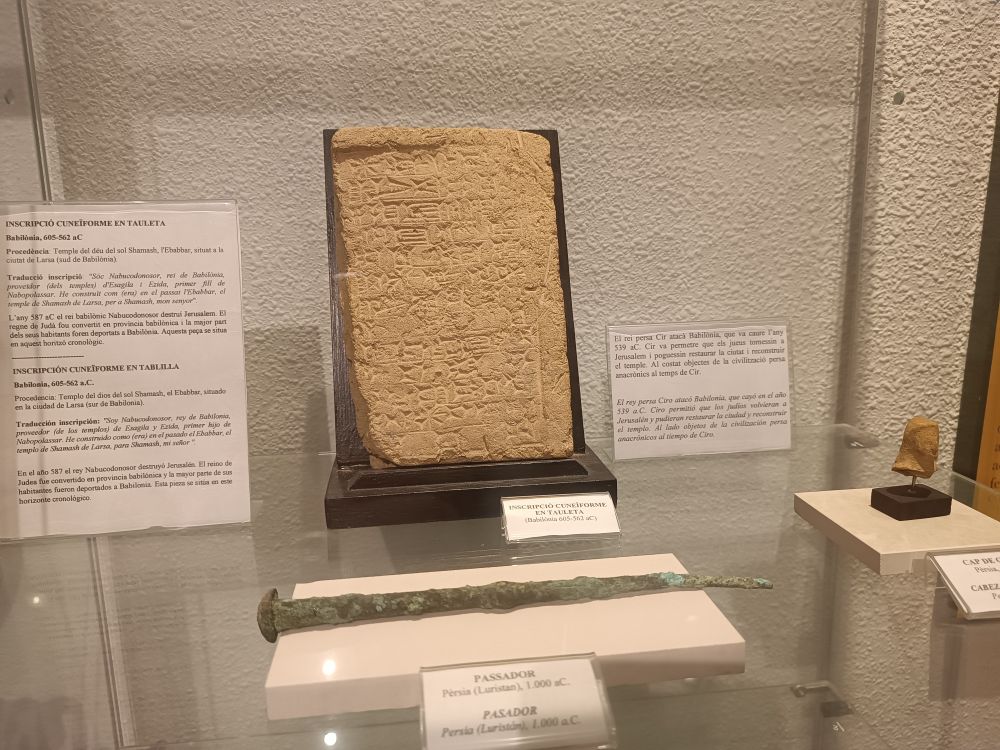 INSCRIPCIÓ CUNEÏFORME EN TAULETA
Babilònia, 605-562 aC
Procedència: Temple del déu del sol Shamash, l'Ebabbar, situat a la
ciutat de Larsa (sud de Babilònia).
Traducció inscripció "Sóc Nabucodonosor, rei de Babilònia,
proveïdor (dels temples) d'Esagila i Ezida, primer fill de
Nabopolassar. He construit com (era) en el passat l'Ebabbar, el
temple de Shamash de Larsa, per a Shamash, mon senyor".
L'any 587 aC el rei babilònic Nabucodonosor destruí Jerusalem. El
regne de Judà fou convertit en província babilònica i la major part
dels seus habitants foren deportats a Babilònia. Aquesta peça se situa
en aquest horitzó cronològic.
--------------------
INSCRIPCIÓN CUNEÏFORME EN TABLILLA
Babilonia, 605-562 a.C.
Procedencia: Templo del dios del sol Shamash, el Ebabbar, situado
en la ciudad de Larsa (sur de Babilonia).
Traducción inscripción: "Soy Nabucodonosor, rey de Babilonia,
proveedor (de los templos) de Esagila y Ezida, primer hijo de
Nabopolassar. He construido como (era) en el pasado el Ebabbar, el
templo de Shamash de Larsa, para Shamash, mi señor".
En el año 587 el rey Nabucodonosor destruyó Jerusalén. El reino de
Judea fue convertido en provincia babilónica y la mayor parte de sus
habitantes fueron deportados a Babilonia. Esta pieza se sitúa en este
horizonte cronológico.
El rei persa Cir atacà Babilònia, que va caure l'any
539 aC. Cir va permetre que els jueus tornessin a
Jerusalem i poguessin restaurar la ciutat i reconstruir
el temple. Al costat objectes de la civilització persa
anacrònics al temps de Cir.
El rey persa Ciro atacó Babilonia, que cayó en el año
539 a.C. Ciro permitió que los judíos volvieran a
Jerusalén y pudieran restaurar la ciudad y reconstruir
el templo. Al lado objetos de la civilización persa
anacrónicos al tiempo de Ciro.
INSCRIPCIÓ CUNEÏFORME
EN TAULETA
(Babilònia 605-562 aC)
PASSADOR
Pèrsia (Luristan), 1.000 aC.
PASADOR
Persia (Luristán), 1.000 a.C.
CAP DE
Pèrsia,
CABEZ